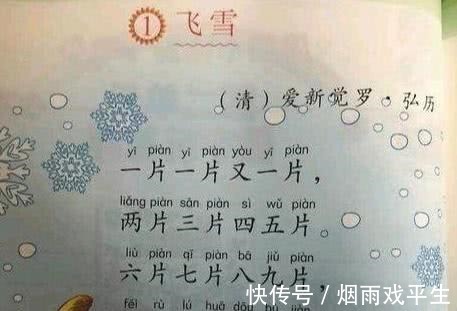 1 飞雪
（清）爱新觉罗·弘历
yī piàn yī piàn yòu yī piàn
一片一片又一片，
liǎng piàn sān piàn sì wǔ piàn
两片三片四五片
liù piàn qī piàn bā jiǔ piàn
六片七片八九片，
fēi rù lú huā dōu bú jiàn
快传号 / 烟雨戏平生